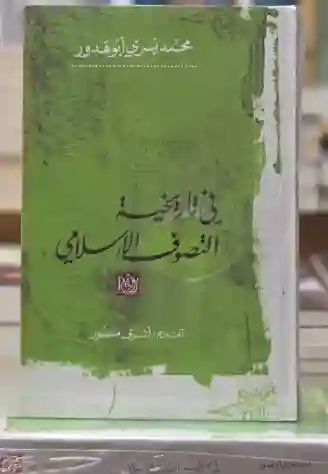 محمد يسري أبو هدور
في تاريخية
التصوف الإسلامي
تقديم: أشرف منصور